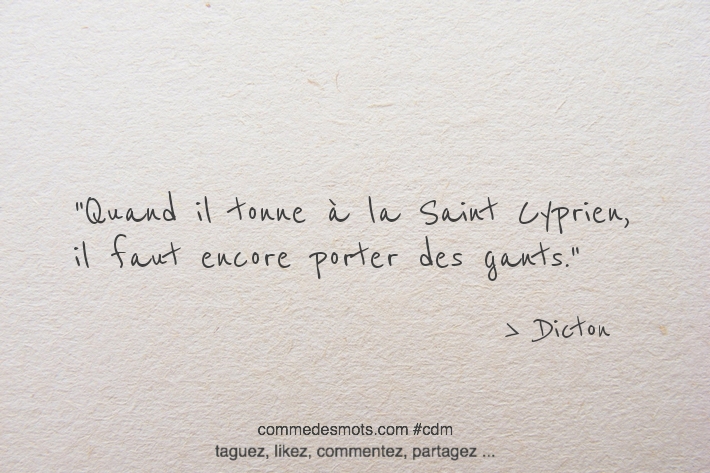 "Quand il tonne à la Saint Cyprien,
il faut encore porter des gants."
> Dicton
commedesmots.com #cdm
taguez, likez, commentez, partagez ...